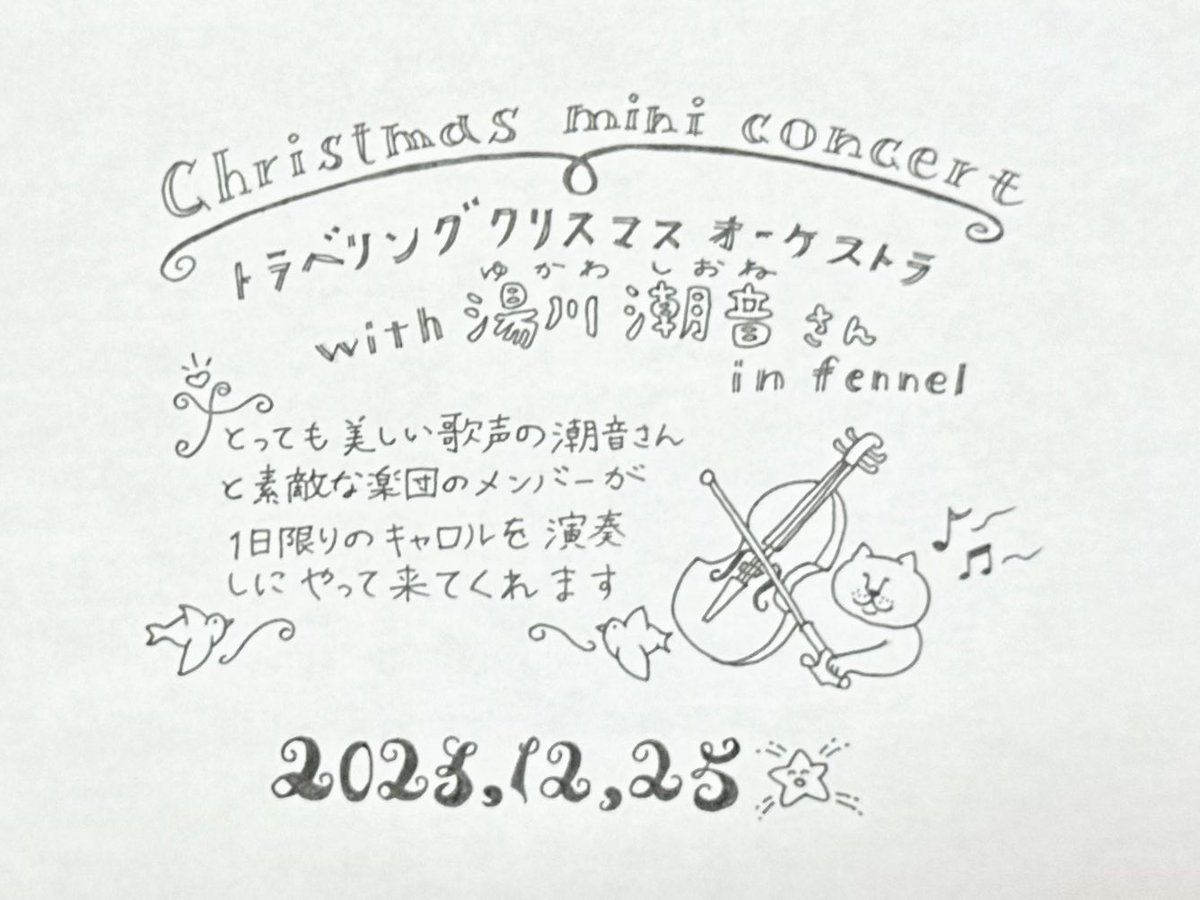 Christmas mini concert
トラベリングクリスマスオーケストラ
ゆかわ しおね
with 湯川 潮音 さん
in fennel
とっても美しい歌声の潮音さん
と素敵な楽団のメンバーが
1日限りのキャロルを演奏
しにやって来てくれます
2023,12,25